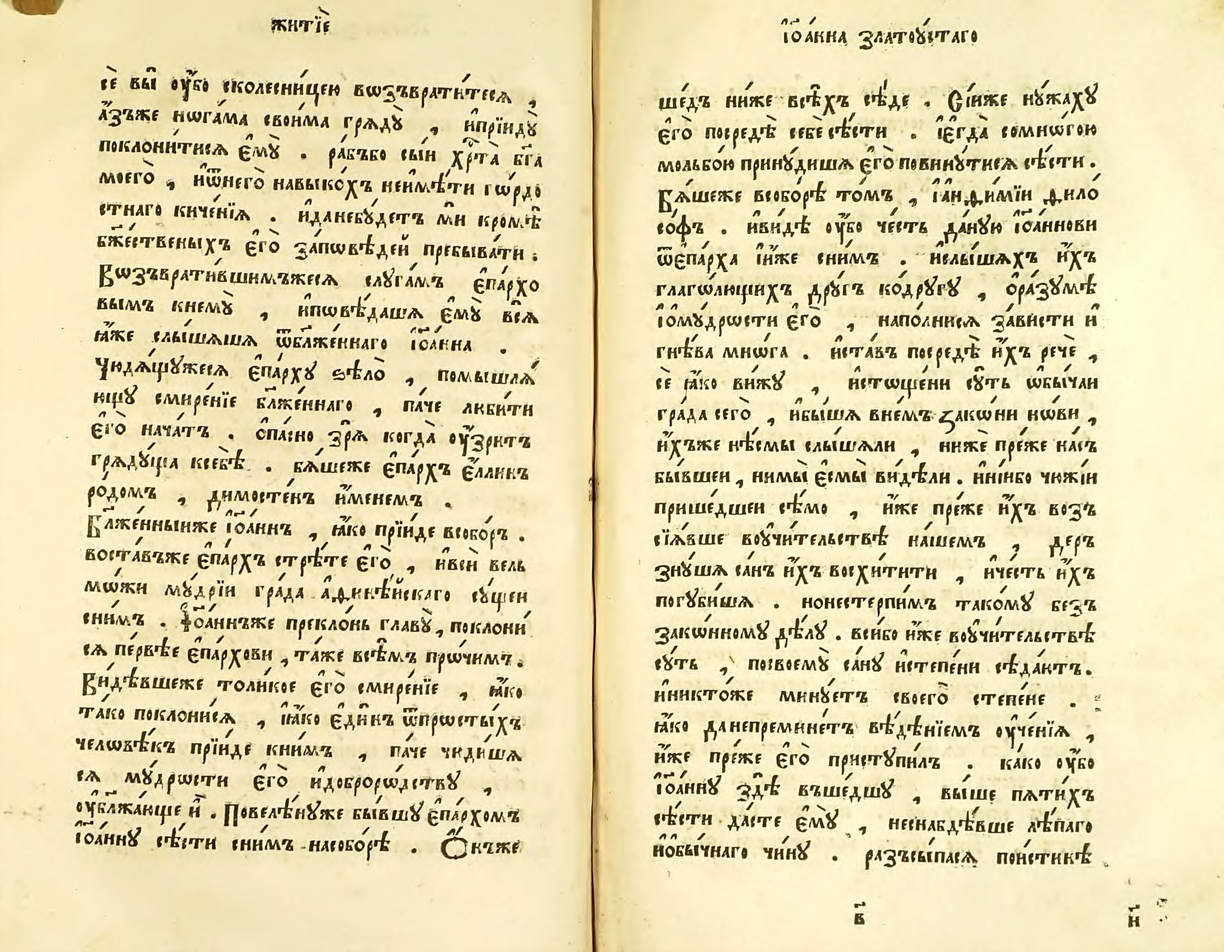 житїѐ
сѐ вы̀ ᲂу҆́бо сколесни́цею вѡзъврати́тесѧ ,
а҆́зъже нѡга́ма свои́ма грѧдꙋ̀ , и҆прїидꙋ̀
поклони́тисѧ є҆мꙋ̀ . ра́бъбо сы́и хр҇та̀ бг҃а
моего̀ , и҆ѿнего̀ навыко́хъ неи҆мѣ́ти гѡ́рдо
стнаго киче́нїѧ . и҆данебꙋ́детъ мѝ кромѣ̀
бж҇е́ственыхъ є҆го̀ за́пѡвѣдей пребыва́ти .
Вѡзъврати́вшимъжесѧ слꙋга́мъ є҆па́рхо
вымъ кнемꙋ̀ , и҆пѡвѣ́дашѧ є҆мꙋ̀ всѧ̀
ꙗ҆́же слы́шѧшѧ ѿблаже́ннаго і҆ѡа́нна .
Чюдѧ́щꙋжесѧ є҆па́рхꙋ ѕѣло̀ , помышлѧ́
ющꙋ смире́нїе блаже́ннаго , па́че люби́ти
є҆го̀ нача́тъ . ѻ҆па́сно зрѧ̀ когда̀ ᲂу҆́зритъ
грѧдꙋ́ща ксебѣ̀ . бѧ́шеже є҆па́рхъ є҆́ллинъ
ро́домъ , димосте́нъ и҆́менемъ .
Блаже́нныиже і҆ѡа́ннъ , ꙗ҆́ко прїи́де всобо́р .
воста́въже є҆па́рхъ стрѣ́те є҆го̀ , и҆всѝ вель
мѡ́жи мꙋ́дрїи гра́да а҆ѳине́йскаго сꙋ́щеи
сни́мъ . І҆ѡа́ннъже прекло́нь главꙋ̀ , поклони́
сѧ пе́рвѣе є҆па́рхови , та́же всѣ́мъ прѡ́чимъ .
Ви́дѣвшеже толи́кое є҆го̀ смире́нїе , ꙗ҆́ко
та́ко поклони́сѧ , ꙗ҆́ко є҆ди́нъ ѿпрѡсты́хъ
челѡвѣ́къ прїи́де кни́мъ , па́че чиди́шѧ
сѧ мꙋ́дрѡсти є҆го̀ и҆доброро́дствꙋ ,
ᲂу҆блажа́юще и҆̀ . Повелѣ́нꙋже бы́вшꙋ є҆па́рхомъ
і҆ѡа́ннꙋ сѣ́сти сни́мъ насобо́рѣ . Ѻ҆́нъже
і҆ѡа́нна златоꙋ́стаго
ше́дъ ни́же всѣ́хъ сѣ́де . Сі́иже нꙋжа́хꙋ
є҆го̀ посредѣ̀ себѐ сѣ́сти . і҆є҆гда̀ сомно́гою
мольбо́ю принꙋ́дишѧ є҆го̀ повинꙋ́тисѧ сѣ́сти .
Бѧ́шеже всобо́рѣ то́мъ , і҆анѳи́мїи фило́
соѳъ . и҆ви́дѣ ᲂу҆́бо че́сть да́нꙋю і҆ѡа́ннови
ѿє҆па́рха і҆и́же сни́мъ . и҆слы́шѧхъ и҆́хъ
глаго́лющихъ дрꙋ́гъ кодрꙋ́гꙋ , ѻ҆ра́зꙋмѣ
і҆омꙋ́дрѡсти є҆го̀ , напо́лнисѧ за́висти и҆
гнѣ́ва мно́га . и҆ста́въ посредѣ̀ и҆́хъ речѐ ,
сѐ ꙗ҆́ко ви́жꙋ , и҆стѡще́ни сꙋ́ть ѡ҆бы́чаи
гра́да сего̀ , и҆бы́шѧ вне́мъ зако́ни но́ви ,
и҆́хъже нѣ́смы слы́шѧли , нижѐ пре́же на́съ
бы́вшеи , нимы̀ є҆смы̀ ви́дѣли . и҆ні́ибо чюжі́и
прише́дшеи сѣ́мо , и҆́же пре́же и҆́хъ возъ
сїѧ́вше воꙋчи́тельствѣ на́шемъ , дер
знꙋ́шѧ са́нъ и҆́хъ восхити́ти , и҆че́сть и҆́хъ
погꙋби́шѧ . нонестерпи́мъ тако́мꙋ безъ
зако́нномꙋ дѣ́лꙋ . всѝбо и҆́же воꙋчи́тельствѣ
сꙋ́ть , посвоемꙋ̀ са́нꙋ и҆сте́пени сѣда́ютъ .
и҆никто́же минꙋ́етъ своего̀ сте́пене .
ꙗ҆́ко данепремине́тъ вѣ́дѣнїемъ ᲂу҆че́нїѧ ,
и҆́же пре́же є҆го̀ пристꙋпи́лъ . ка́ко ᲂу҆́бо
і҆ѡа́ннꙋ здѣ̀ въше́дшꙋ , вы́ше пѧти́хъ
сѣ́сти да́сте є҆мꙋ̀ , неснабдѣ́вше лѣ́паго
и҆обы́чнаго чи́нꙋ . разъсы́пасѧ пои́стинѣ
в҃
н҃